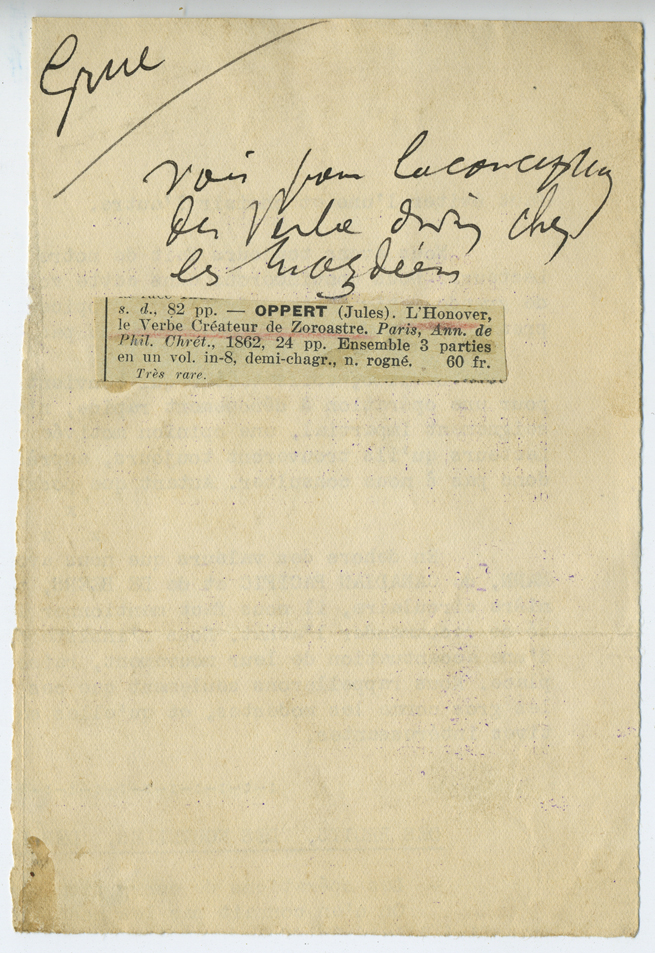 voir pour la conception
du Verbe divin chez
les Mazdéens
s. d., 82 pp. — OPPERT (Jules). L'Honover,
le Verbe Créateur de Zoroastre. Paris, Ann. de
Phil. Chrét., 1862, 24 pp. Ensemble 3 parties
en un vol. in-8, demi-chagr., n. rogné. 60 fr.
Très rare.